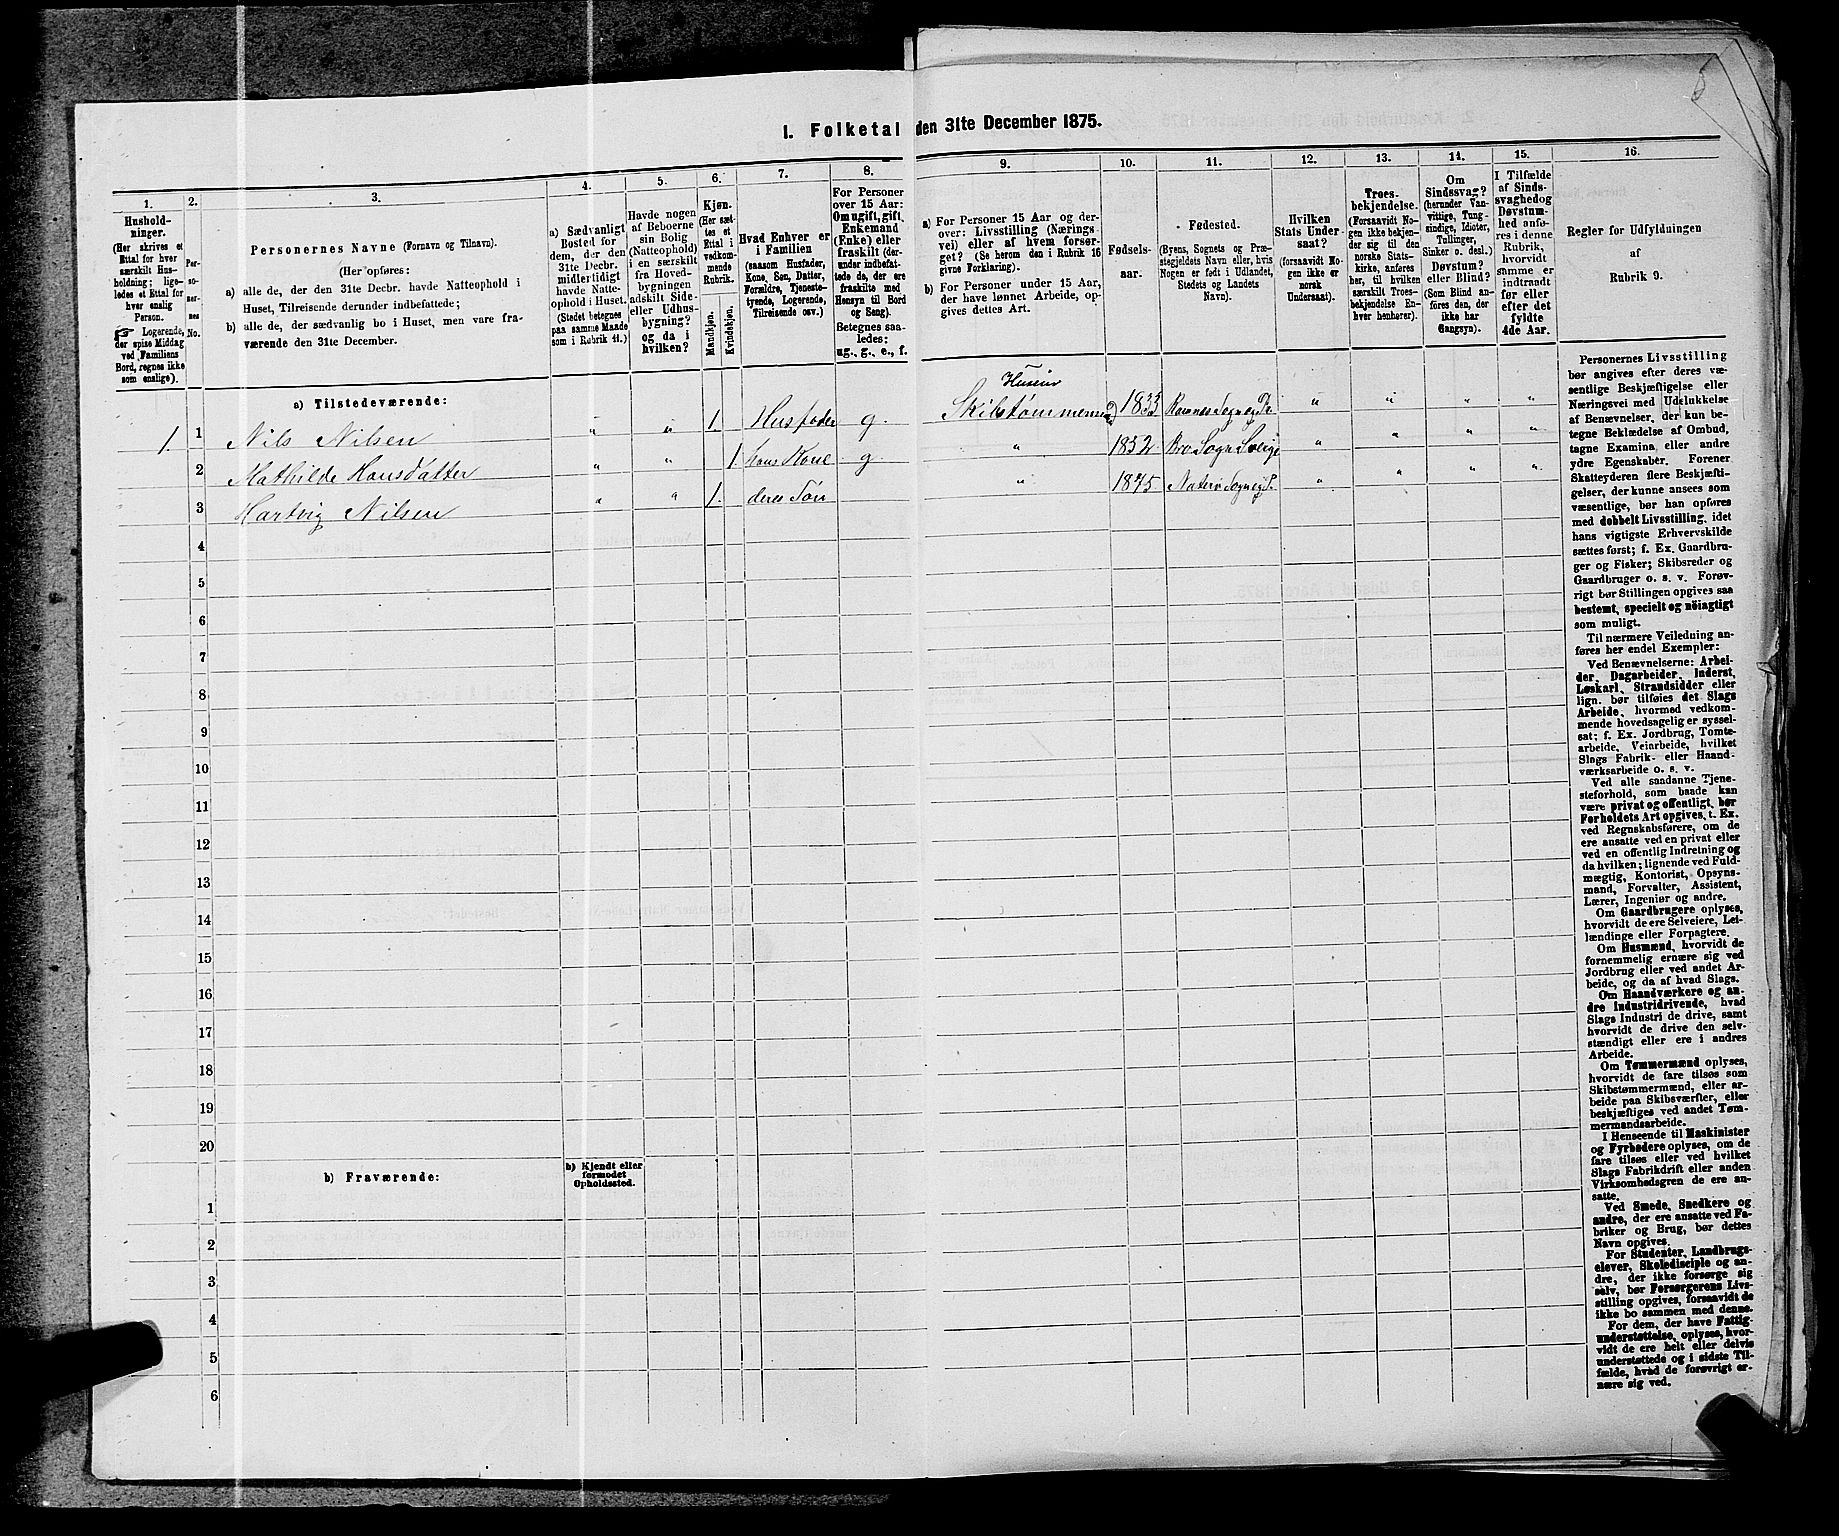 5
1. Folketal den 31te December 1875.
1.
2.
3.
4.
5.
6.
7.
8.
9.
10.
11.
12.
13.
14.
15.
16.
Hushold-
ninger.
(Her skrives et
Ettal for hver
særskilt Hus-
holdning; lige-
ledes et Ettal for
hver enslig
Person.
☞ Logerende,
der spise Middag
ved Familiens
Bord, regnes ikke
som enslige).
Per-
so-
ner-
nes
No.
Personernes Navne (Fornavn og Tilnavn).
(Her opføres:
a) alle de, der den 31te Decbr. havde Natteophold i
Huset, Tilreisende derunder indbefattede;
b) alle de, der sædvanlig bo i Huset, men vare fra-
værende den 31te December.
a) Sædvanligt
Bosted for
dem, der den
31te Decbr.
midlertidigt
havde Natte-
ophold i Huset.
(Stedet betegnes
paa samme Maade
som i Rubrik 11.)
Havde nogen
af Beboerne
sin Bolig
(Natteophold)
i en særskilt
fra Hoved-
bygningen
adskilt Side-
eller Udhus-
bygning?
og da i
hvilken?
Kjøn.
(Her sæt-
tes et
Ettal i
vedkom-
mende
Rubrik.
Mandkjøn.
Kvindekjøn.
Hvad Enhver er
i Familien
(saasom Husfader,
Kone, Søn, Datter,
Forældre, Tjeneste-
tyende, Logerende,
Tilreisende osv.)
For Personer
over 15 Aar:
Om ugift, gift,
Enkemand
(Enke) eller
fraskilt (der-
under indbefat-
tede de, der ere
fraskilte med
Hensyn til Bord
og Seng).
Betegnes saa-
ledes:
ug., g., e., f.
a) For Personer 15 Aar og der-
over: Livsstilling (Nærings-
vei) eller af hvem forsør-
get? (Se herom den i Rubrik 16
givne Forklaring).
b) For Personer under 15 Aar,
der have lønnet Arbeide, op-
gives dettes Art.
Fødsels-
aar.
Fødested.
(Byens, Sognets og Præ-
stegjeldets Navn eller, hvis
Nogen er født i Udlandet,
Stedets og Landets
Navn).
Hvilken
Stats Under-
saat?
(forsaavidt No-
gen ikke er
norsk
Undersaat).
Troes-
bekjendelse.
(Forsaavidt No-
gen ikke bekjen-
der sig til den
norske Stats-
kirke, anføres
her, til hvilken
særskilt Troes-
bekjendelse En-
hver henhører).
Om
Sindssvag?
(herunder Van-
vittige, Tung-
sindige, Idioter,
Tullinger,
Sinker o. desl.)
Døvstum?
eller Blind?
(Som Blind an-
føres den, der
ikke har
Gangsyn).
I Tilfælde
af Sinds-
svaghed og
Døvstum-
hed anfø-
res i denne
Rubrik,
hvorvidt
samme er
indtraadt
før eller
efter det
fyldte
4de Aar.
Regler for Udfyldningen
af
Rubrik 9.
a) Tilstedeværende:
1. 1 Nils Nilsen " " 1. Husfader g. Skibstømmermand 1833
2 Mathilde Hansdatter " " 1. hans Kone g. " 1852. Bro Sogn Sverige " " " "
3 Hartvig Nilsen " " 1. deres Søn " 1875. " " " "
4
5
6
7
8
9
10
11
12
13
14
15
16
17
18
19
20
b) Fraværende:
b) Kjendt eller
formodet
Opholdssted.
1
2
3
4
5
6
Personernes Livsstilling
bør angives efter deres væ-
sentlige Beskjæftigelse eller
Næringsvei med Udelukkelse
af Benævnelser, der kun be-
tegne Beklædelse af Ombud,
tagne Examina eller andre
ydre Egenskaber. Forener
Skatteyderen flere Beskjæfti-
gelser, der kunne ansees som
væsentlige, bør han opføres
med dobbelt Livsstilling, idet
hans vigtigste Erhvervskilde
sættes først; f. Ex. Gaardbru-
ger og Fisker; Skibsreder og
Gaardbruger o. s. v. Forøv-
rigt bør Stillingen opgives saa
bestemt, specielt og nöiagtigt
som muligt.
Til nærmere Veiledning an-
føres her endel Exempler:
Ved Benævnelserne: Arbei-
der, Dagarbeider, Inderst,
Løskarl, Strandsidder eller
lign. bør tilføies det Slags
Arbeide, hvormed vedkom-
mende hovedsagelig er syssel-
sat; f. Ex. Jordbrug, Tomte-
arbeide, Veiarbeide, hvilket
Slags Fabrik- eller Haand-
værksarbeide o. s. v.
Ved alle saadanne Tjene-
steforhold, som baade kan
være privat og offentligt, bør
Forholdets Art opgives, t. Ex.
ved Regnskabsførere, om de
ere ansatte ved en privat eller
ved en offentlig Indretning og
da hvilken; lignende ved Fuld-
mægtig, Kontorist, Opsyns-
mand, Forvalter, Assistent,
Lærer, Ingeniør og andre.
Om Gaardbrugere oplyses,
hvorvidt de ere Selveiere, Lei-
lændinge eller Forpagtere.
Om Husmænd, hvorvidt de
fornemmelig ernære sig ved
Jordbrug eller ved andet Ar-
beide, og da af hvad Slags.
Om Haandværkere og an-
dre Industridrivende, hvad
Slags Industri de drive, samt
hvorvidt de drive den selv-
stændigt eller ere i andres
Arbeide.
Om Tømmermænd oplyses,
hvorvidt de fare tilsøs som
Skibstømmermænd, eller ar-
beide paa Skibsværfter, eller
beskjæftiges ved andet Tøm-
mermandsarbeide.
I Henseende til Maskinister
og Fyrbødere oplyses, om de
fare tilsøs eller ved hvilket
Slags Fabrikdrift eller anden
Virksomhedsgren de ere an-
satte.
Ved Smede, Snedkere og
andre, der ere ansatte ved Fa-
briker og Brug, bør dettes
Navn opgives.
For Studenter, Landbrugs-
elever, Skoledisciple og an-
dre, der ikke forsørge sig
selv, bør Forsørgerens Livs-
stilling opgives, forsaavidt de
ikke bo sammen med denne.
For dem, der have Fattig-
understøttelse, oplyses, hvor-
vidt de ere helt eller delvis
understøttede og i sidste Til-
fælde, hvad de forøvrigt er-
nære sig ved.